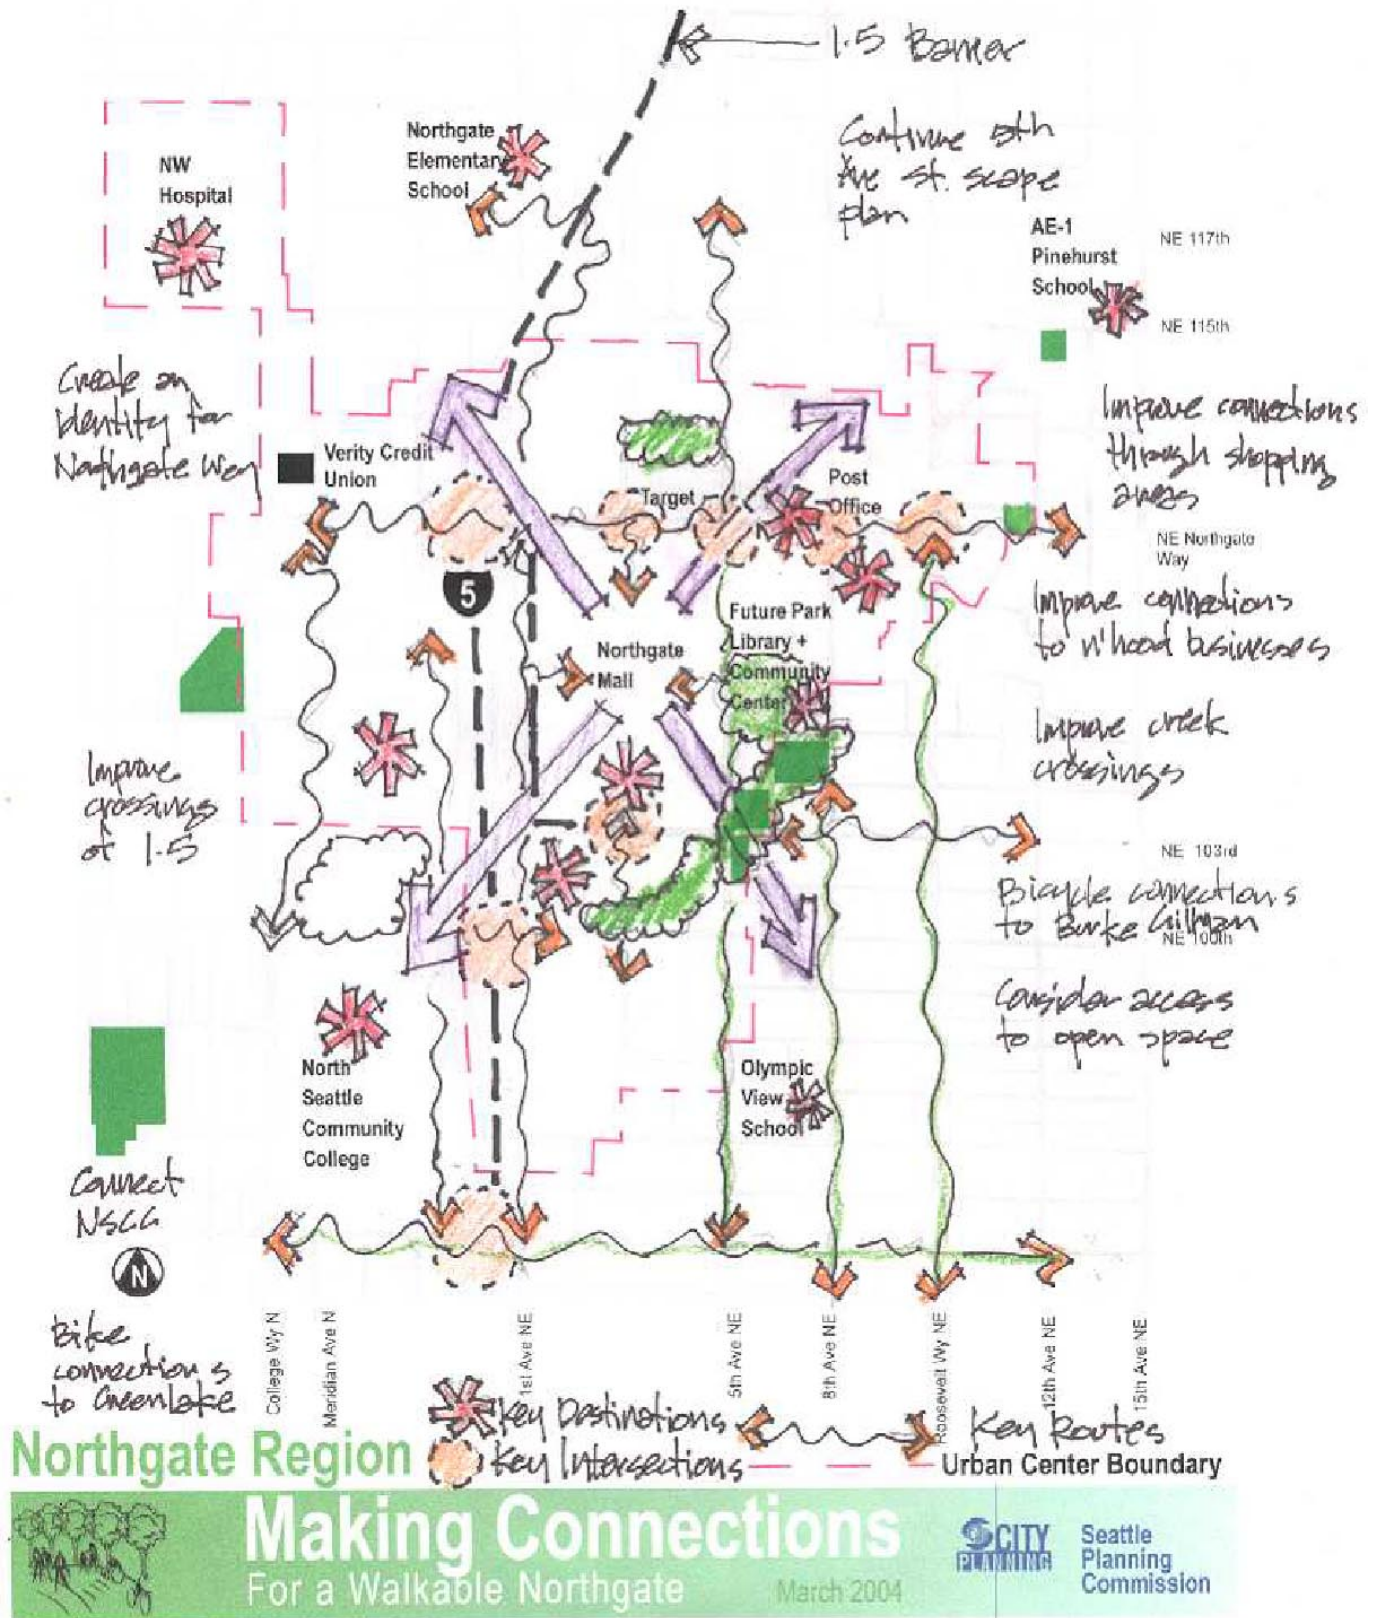 1.5 Barrier
Continue 5th
Ave st. scape
plan
Northgate
Elementary
School
NW
Hospital
AE-1
Pinehurst
School
NE 117th
NE 115th
Create an
Identity for
Northgate Way
Verity Credit
Union
Target
Post
Office
Improve connections
through shopping
areas
NE Northgate
Way
5
Future Park
Library +
Community
Center
Northgate
Mall
Improve connections
to n'hood businesses
Improve creek
crossings
Improve
crossings
of 1.5
NE 103rd
Bicycle connections
to Burke Gillman
NE 100th
Consider access
to open space
North
Seattle
Community
College
Olympic
View
School
Connect
NSCC
N
Bike
connections
to Greenlake
College Wy N
Meridian Ave N
1st Ave NE
5th Ave NE
8th Ave NE
Roosevelt Wy NE
12th Ave NE
15th Ave NE
Key Destinations
Key Routes
Key Intersections
Urban Center Boundary
Northgate Region
Making Connections
For a Walkable Northgate
March 2004
CITY
PLANNING
Seattle
Planning
Commission